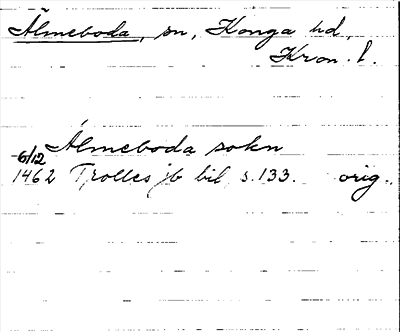 Älmeboda, sn, Konga hd,
Kron. l.
Älmeboda sokn
6/12
1462 Trolles jb bil s. 133. orig.